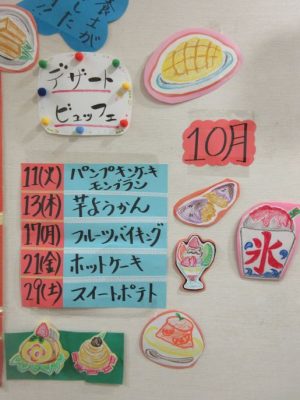 食士が
した
デザート
ビュッフェ
10月
11(火) パンプキンケーキ
モンブラン
13(木) 芋ようかん
17(月) フルーツバイキング
21(金) ホットケーキ
29(土) スイートポテト
氷